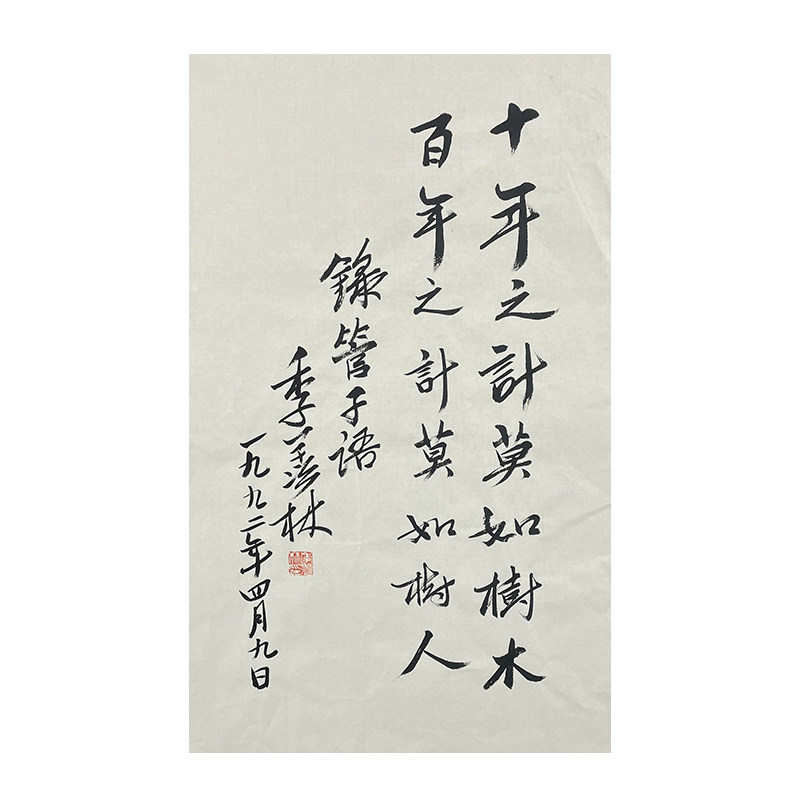 十年之計莫如樹木
百年之計莫如樹人
錄管子語
季羡林
一九九二年四月九日